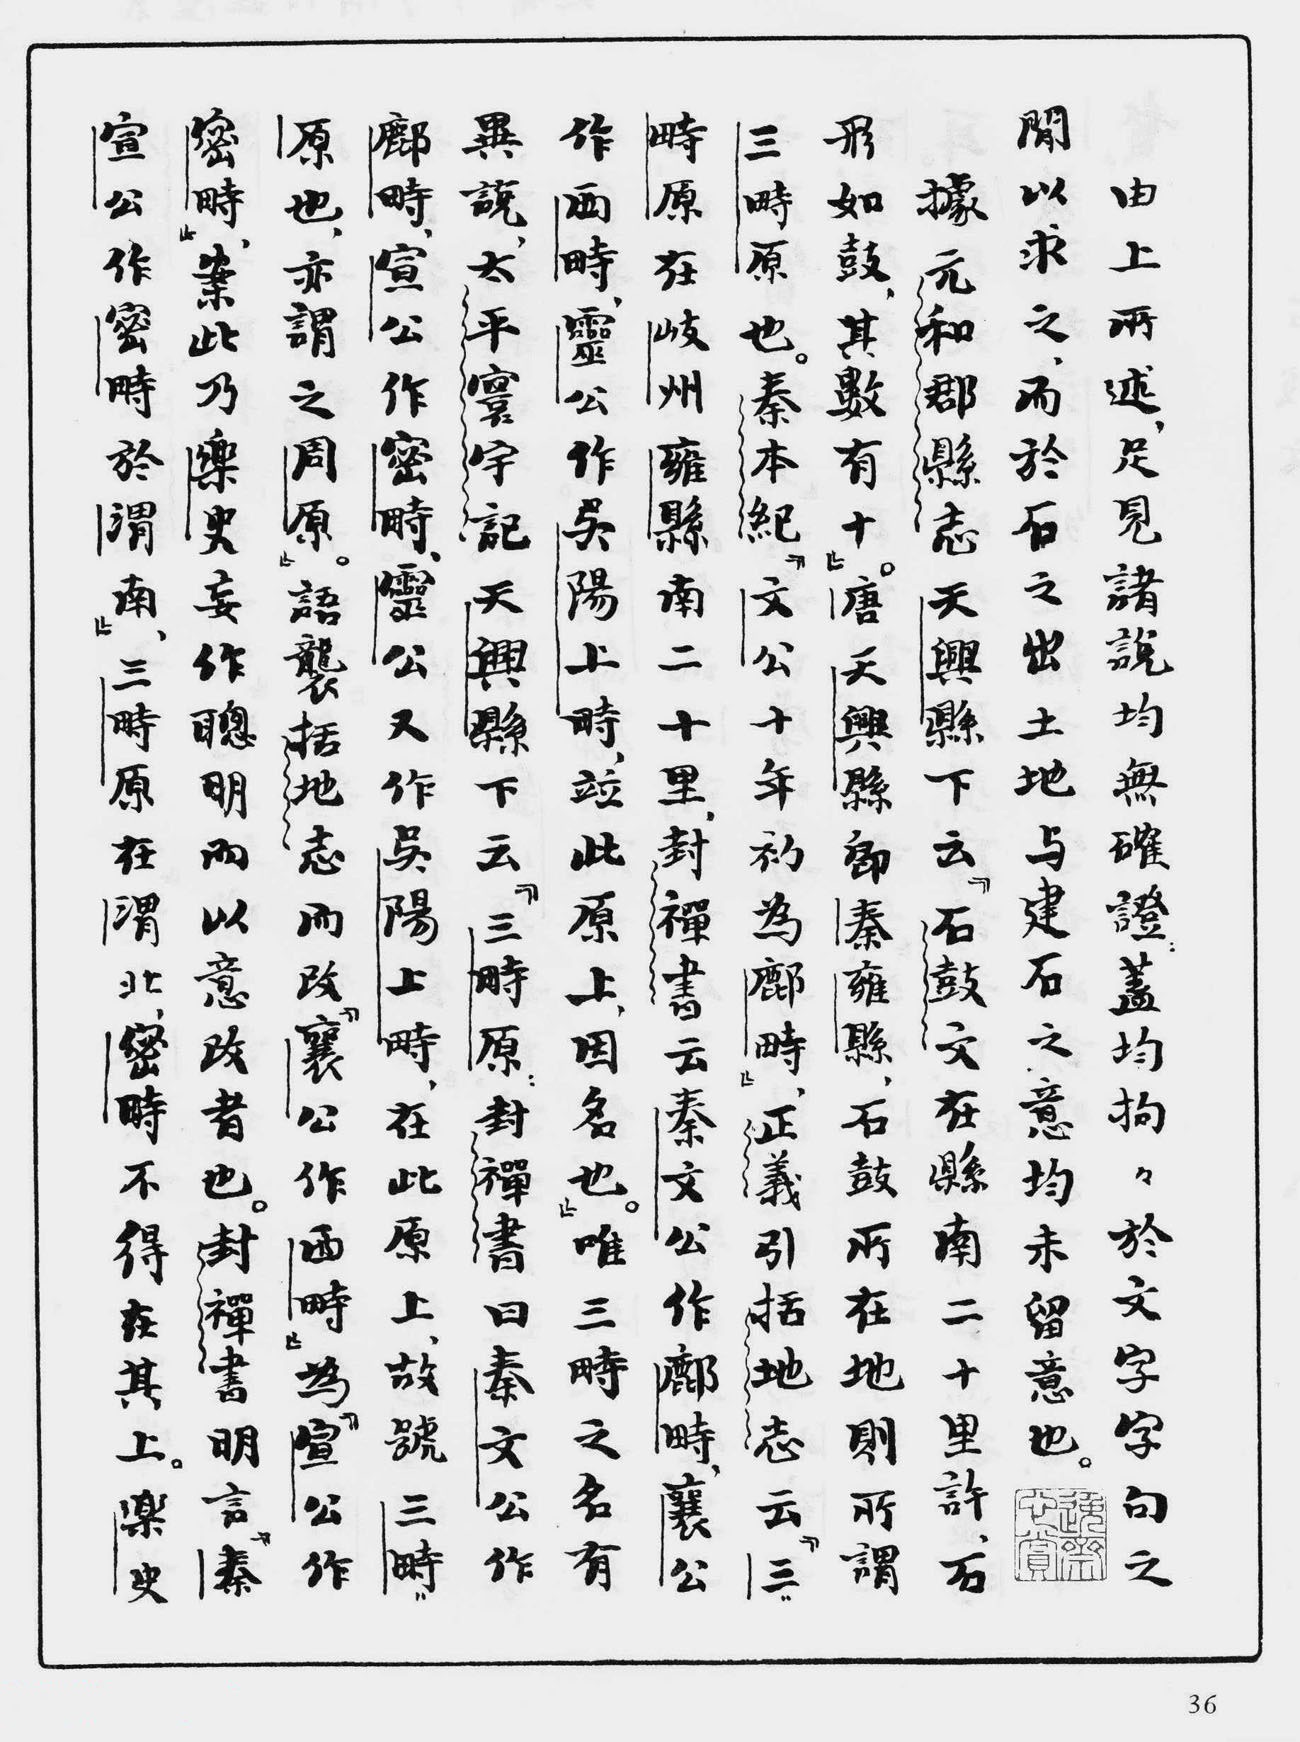 由上所述，足見諸說均無確證：蓋均拘々於文字字句之
間以求之，而於石之出土地与建石之意均未留意也。
據元和郡縣志天興縣下云『石鼓文在縣南二十里許，石
形如鼓，其數有十』。唐天興縣即秦雍縣，石鼓所在地則所謂
三畤原也。秦本紀『文公十年初為鄜畤』，正義引括地志云『三
畤原在岐州雍縣南二十里，封禪書云秦文公作鄜畤，襄公
作西畤，靈公作吳陽上畤，竝此原上，因名也』。唯三畤之名有
異說，太平寰宇記天興縣下云『三畤原：封禪書曰秦文公作
鄜畤，宣公作密畤，靈公又作吳陽上畤，在此原上，故號三畤
原也，亦謂之周原』。語襲括地志而改『襄公作西畤』為『宣公作
密畤』，案此乃樂史妄作聰明而以意改者也。封禪書明言『秦
宣公作密畤於渭南』，三畤原在渭北，密畤不得在其上。樂史
36